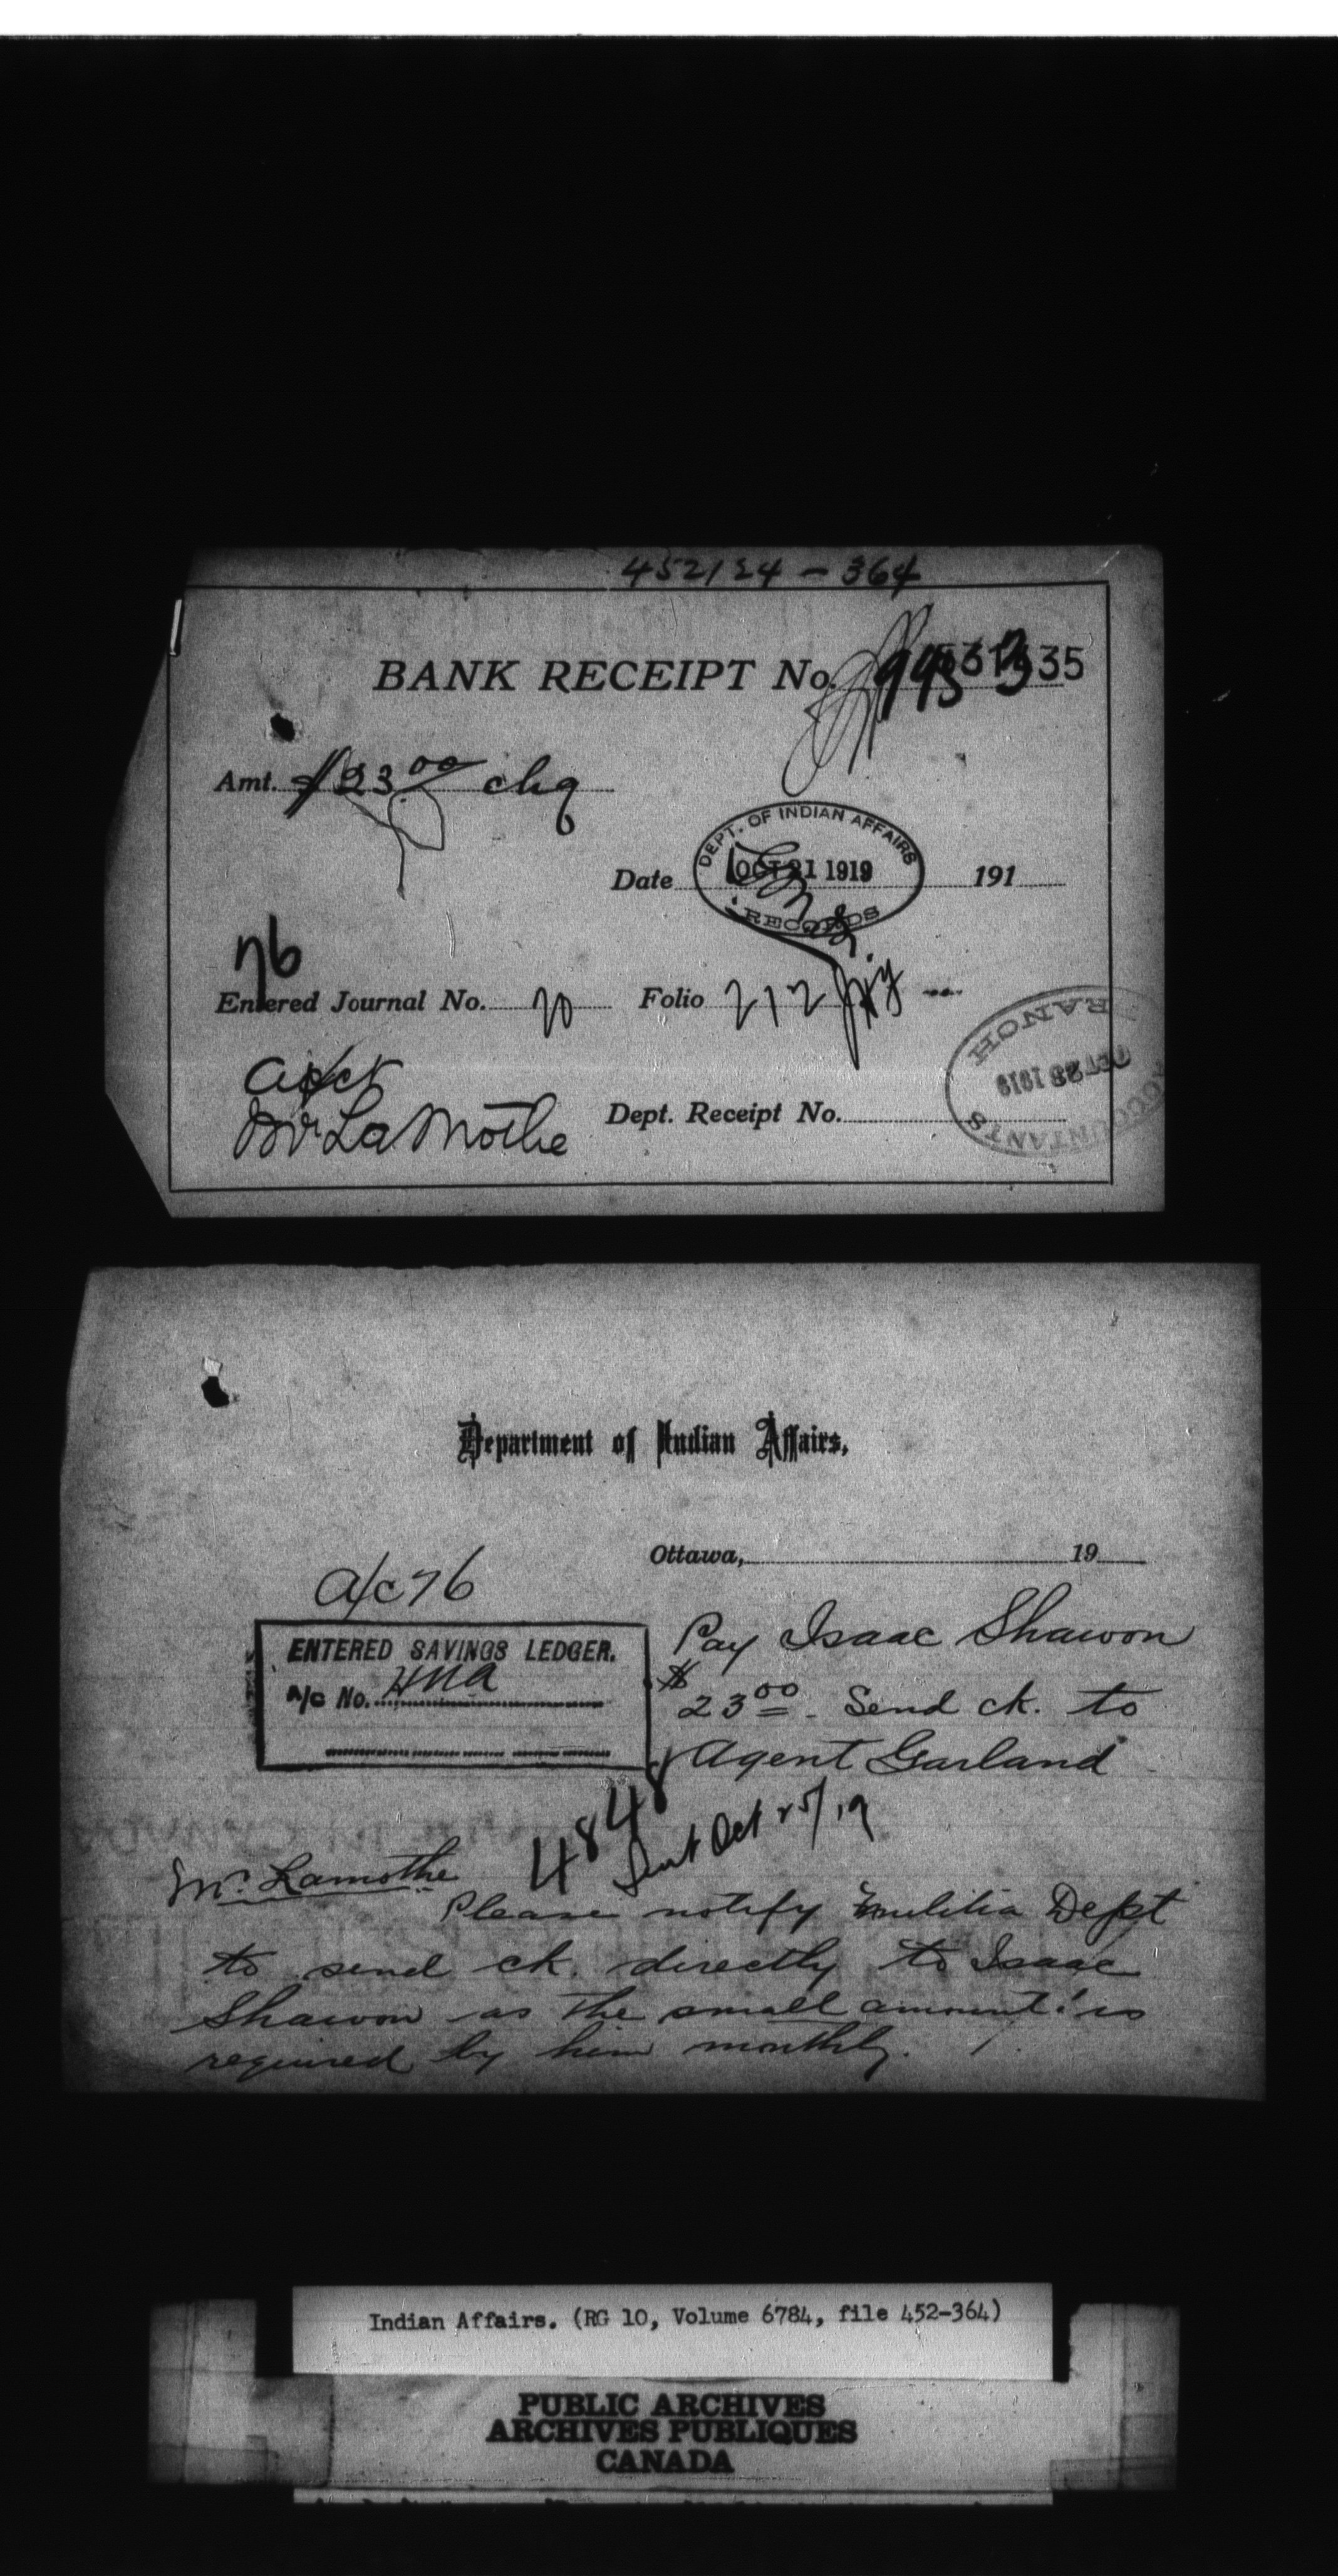 452124 - 364
BANK RECEIPT No.
Amt. $23.00 chq
DEPT. OF INDIAN AFFAIRS
Date OCT 21 1919 191
RECORDS
76
Entered Journal No. 70 Folio 212
Mr LaMothe
Dept. Receipt No.
ACCOUNTANT'S BRANCH
OCT 23 1919
Department of Indian Affairs.
Ottawa, 19
a/c 76
ENTERED SAVINGS LEDGER.
A/c No.
Pay Isaac Shawon
$23.00. Send ck. to
Agent Garland
4848
Sent Oct 25/19
Mr. Lamothe
Please notify Militia Dept
to send ck. directly to Isaac
Shawon as the small amount is
required by him monthly.
Indian Affairs. (RG 10, Volume 6784, file 452-364)
PUBLIC ARCHIVES
ARCHIVES PUBLIQUES
CANADA